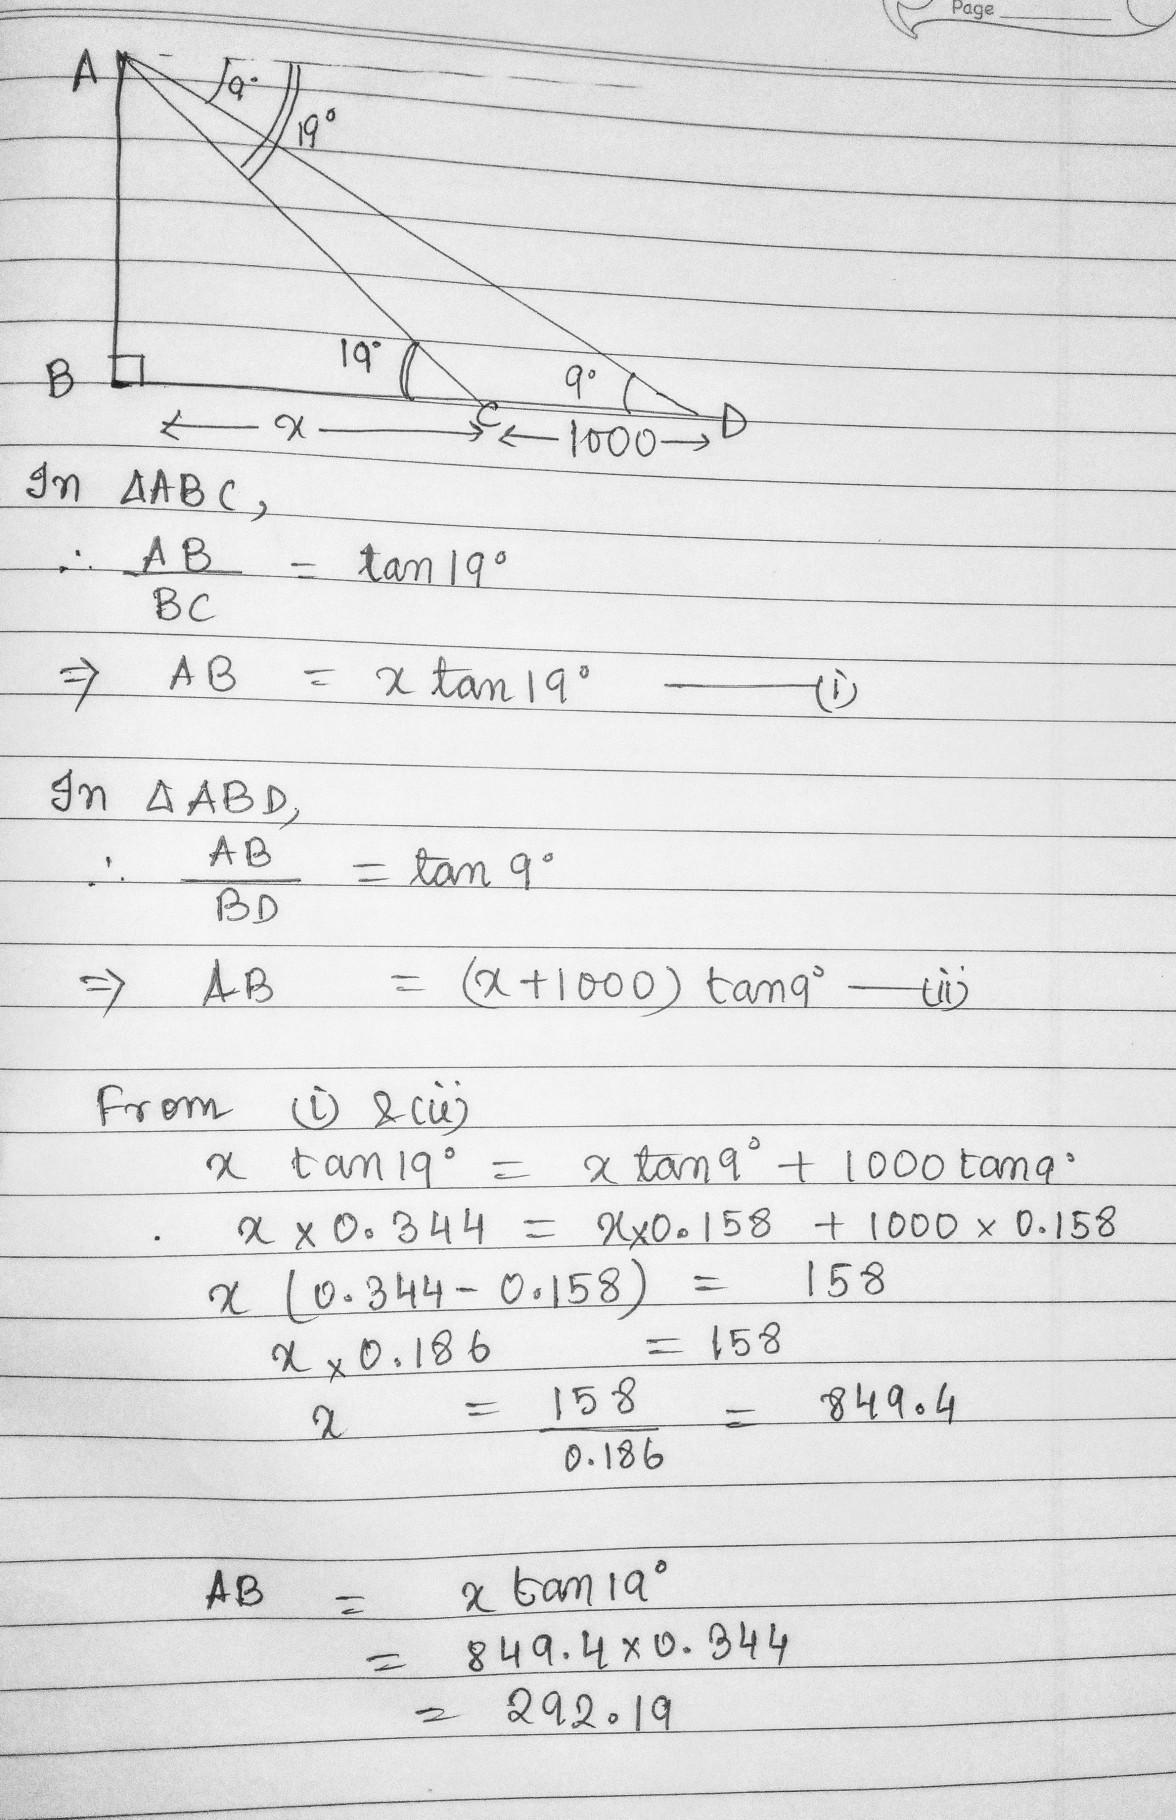 Page
A
9°
19°
B
19°
9°
x
C
1000
D
In ΔABC,
∴ AB/BC = tan 19°
⇒ AB = x tan 19° — (i)
In ΔABD,
∴ AB/BD = tan 9°
⇒ AB = (x+1000) tan9° — (ii)
From (i) & (ii)
x tan 19° = x tan9° + 1000 tan9°
x × 0.344 = x×0.158 + 1000 × 0.158
x (0.344 - 0.158) = 158
x × 0.186 = 158
x = 158/0.186 = 849.4
AB = x tan 19°
= 849.4 × 0.344
= 292.19